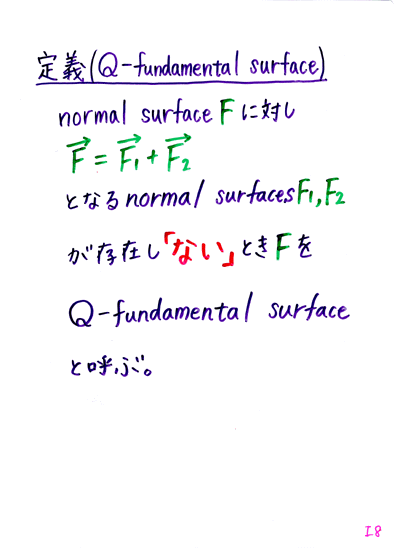 定義(Q-fundamental surface)
normal surface F に対し
F⃗ = F⃗₁ + F⃗₂
となる normal surfaces F₁, F₂
が存在し「ない」とき F を
Q-fundamental surface
と呼ぶ。
I8